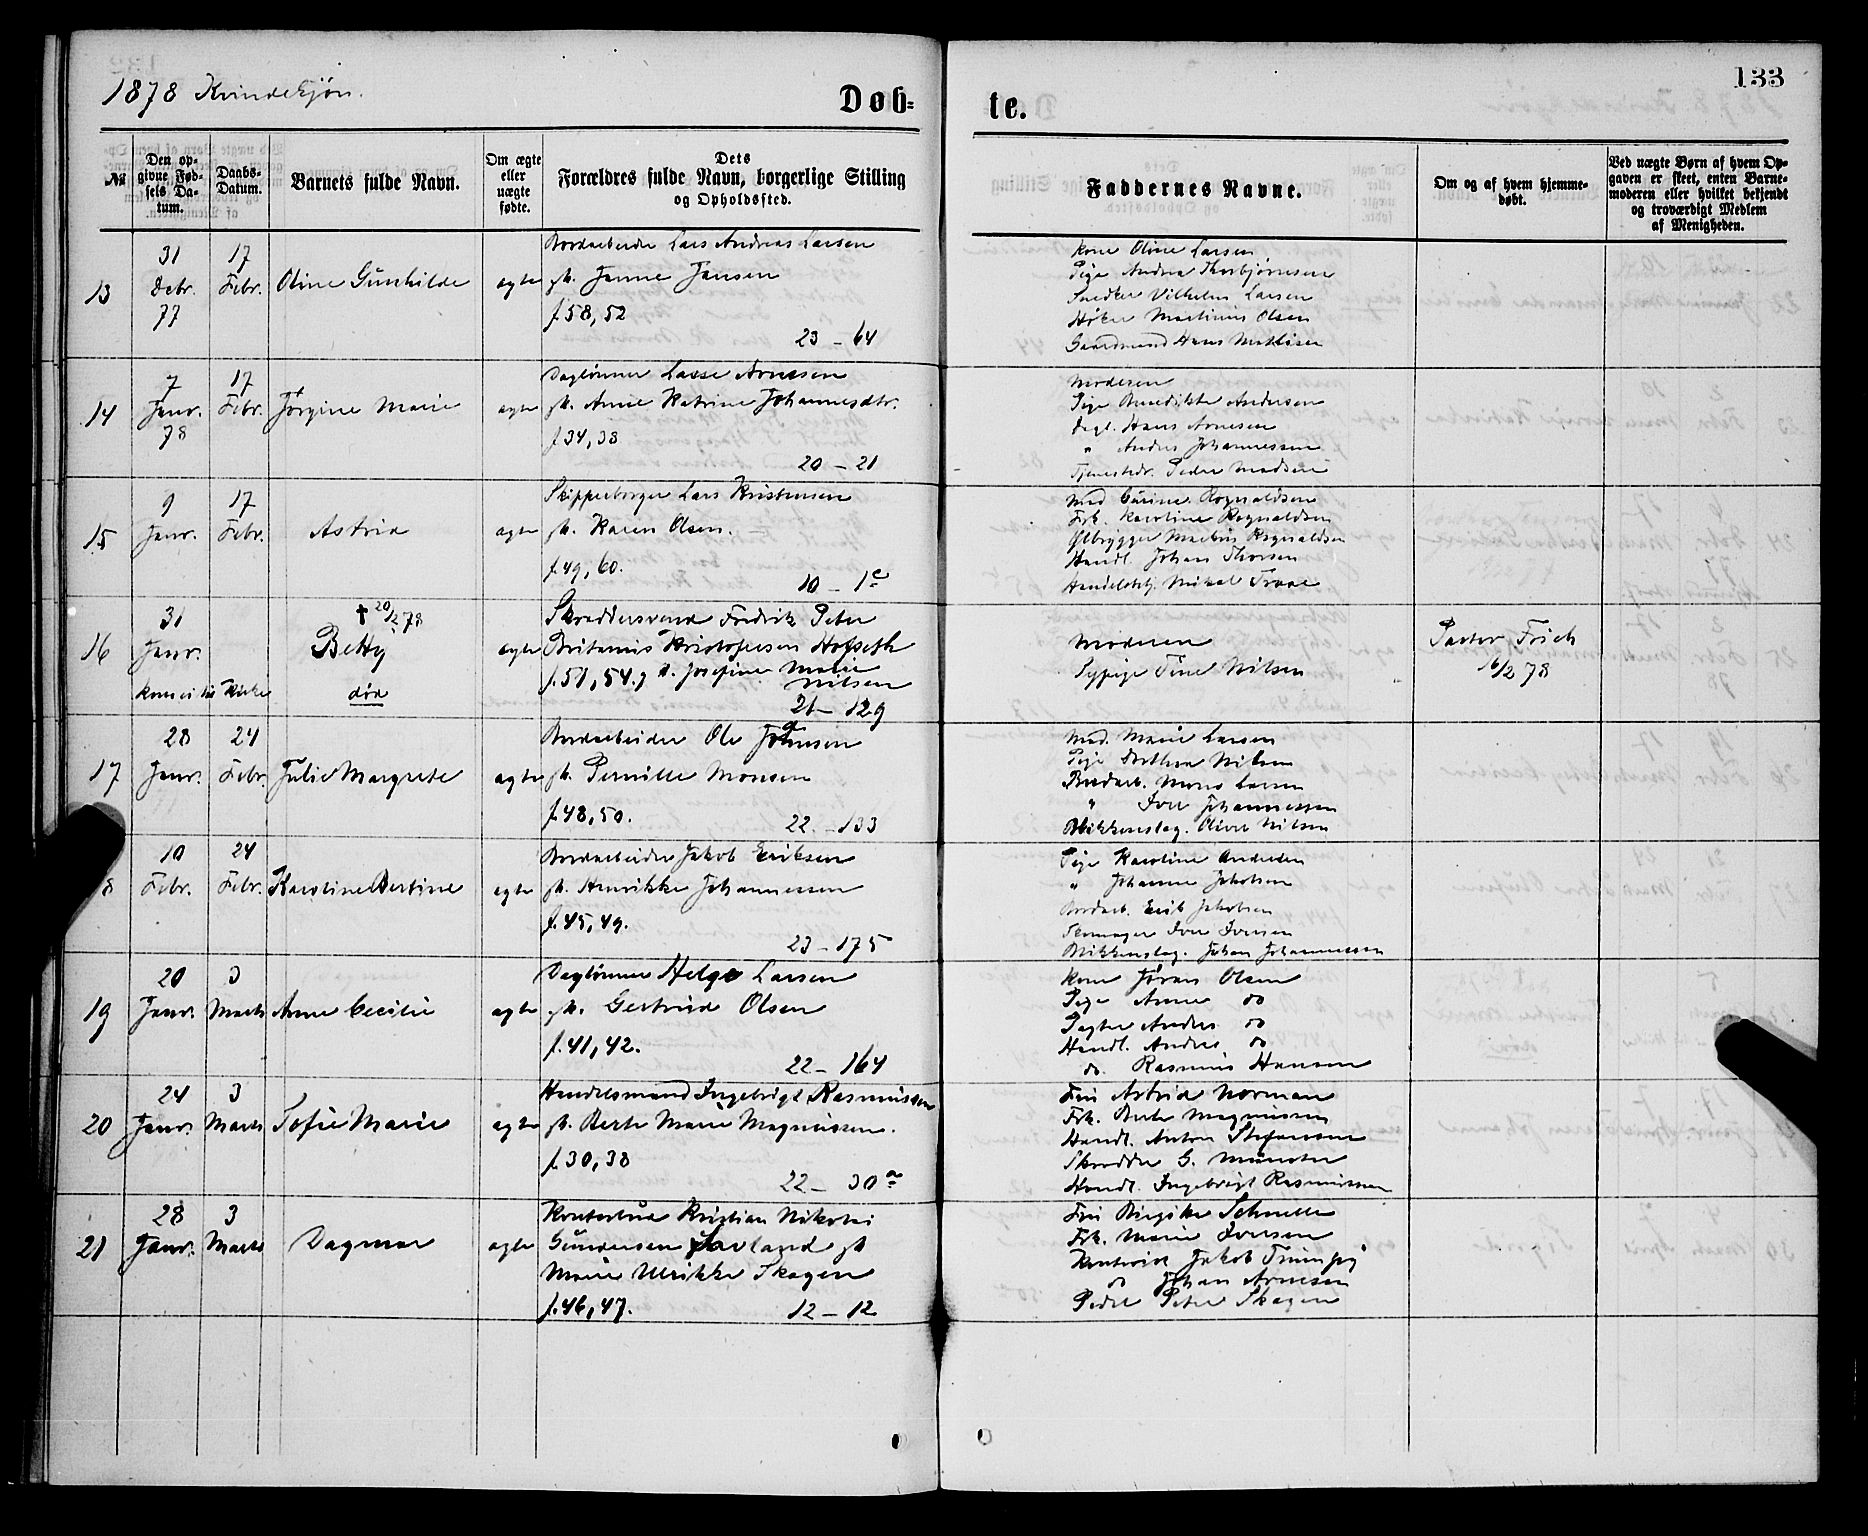 1878 Kvindekjøn.
Døb=
te.
133
№
Den op-
givne Fød-
sels Da-
tum.
Daabs-
Datum.
Barnets fulde Navn.
Om ægte
eller
uægte
fødte.
Dets
Forældres fulde Navn, borgerlige Stilling
og Opholdssted.
Faddernes Navne.
Om og af hvem hjemme-
døbt.
Ved uægte Børn af hvem Op-
gaven er skeet, enten Barne-
moderen eller hvilket bekjendt
og troværdigt Medlem
af Menigheden.
13
31
Debr.
77
17
Febr.
Oline Gunhilde
ægte
Bordarbeider Lars Andreas Larsen
Janne Jansen
f. 58, 52
23 – 64
Kone Oline Larsen
Pige Andrea Thorbjørnsen
Snedker Vilhelm Larsen
Høker Martinus Olsen
Gaardmand Hans
14
7
Janr.
78
17
Febr.
Jørgine Marie
ægte
Daglønner Lasse Arnesen
Anne Katrine Johannesdtr.
f 34, 38
20 – 21
Moderen
Pige Benedikte Andersen
Dagl. Hans Arnesen
" Andreas Johannessen
Tjenestedr. Peder Madsen
15
9
Janr.
17
Febr.
Astrid
ægte
Skipperborger Lars Kristensen
Karen Olsen.
f. 49, 60.
10 – 1c
Mad. Rognaldsen
Frk. Karoline Rognaldsen
Ølbrygger Markus Rognaldsen
Handl. Johan Thorsen
16
31
Janr.
† 20/2 78
Betty
død
ægte
Skræddersvend Fredrik Peter
Kristofersen Hofseth
f. 51, 54. Josefine Marie
Nilsen
21 – 129
Moderen
Sypige Tine Nilsen
Pastor Frich
16/2 78
17
28
Janr.
24
Febr.
Julie Margrete
ægte
Bordarbeider Ole
Pernille Monsen
f. 48, 50.
22. – 133
Mad. Marie Larsen
Pige Nilsen
Bordarb. Mons Larsen
" Iver Johannessen
Blikkenslag. Oliver Nilsen
8
10
Febr.
24
Febr.
Karoline Bertine
ægte
Bordarbeider Jakob Eriksen
Henrikke Johannessen
f. 45, 49.
23 – 175
Pige Karoline Andersen
" Johanne Jakobsen
Bordarb. Erik Jakobsen
Skomager Iver Iversen
Blikkenslag. Johan Johannessen
19
20
Janr.
3
Marts
Anne Cecilie
ægte
Daglønner Helge Larsen
Gertrud Olsen
f. 41, 42.
22 – 164
Kone Jøran Olsen
Pige Anne do
Andres do
Handl. Andres do
do. Rasmus Hansen
20
24
Janr.
3
Marts
Sofie Marie
ægte
Handelsmand Ingebrigt Rasmussen
Berte Marie Magnussen.
f. 30, 38
22 – 30a
Fru Astrid Norman
Frk. Berte Magnussen
Handl. Anton Stefansen
Skrædder G. Münster
Handl. Ingebrigt Rasmussen
21
28
Janr.
3
Marts
Dagmar
ægte
Kristian Nikolai
Gundersen
Marie Ulrikke Skagen
f. 46, 47.
12 – 12
Fru Schnelle
Frk. Marie Iversen
Kontorist Jakob Trumpy
do Johan Arnesen
Peter Skagen